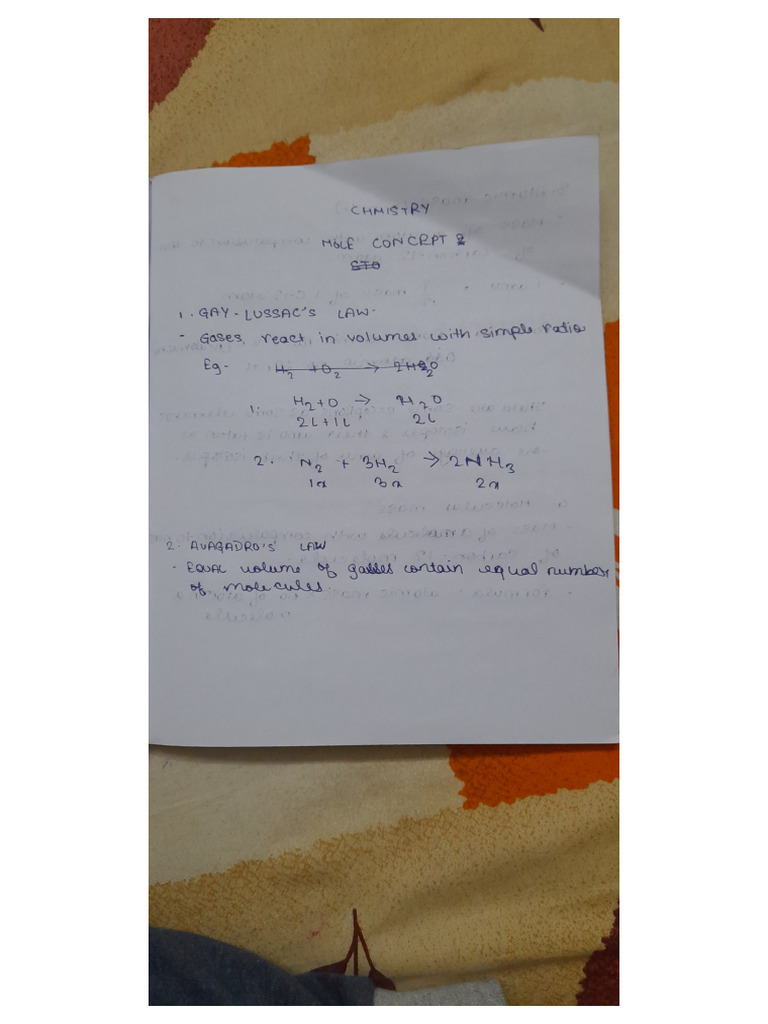 CHMISTRY
MOLE CONCEPT &
STO
1. GAY-LUSSAC'S LAW-
- Gases react in volumes with simple ratio
Eg- H2 + O2 → 2H2O
1. H2+O → H2O
2L+1L 2L
2. N2 + 3H2 → 2NH3
1x 3x 2x
2. AVAGADRO'S LAW
- EQUAL volume of gasses contain equal number
of molecules.